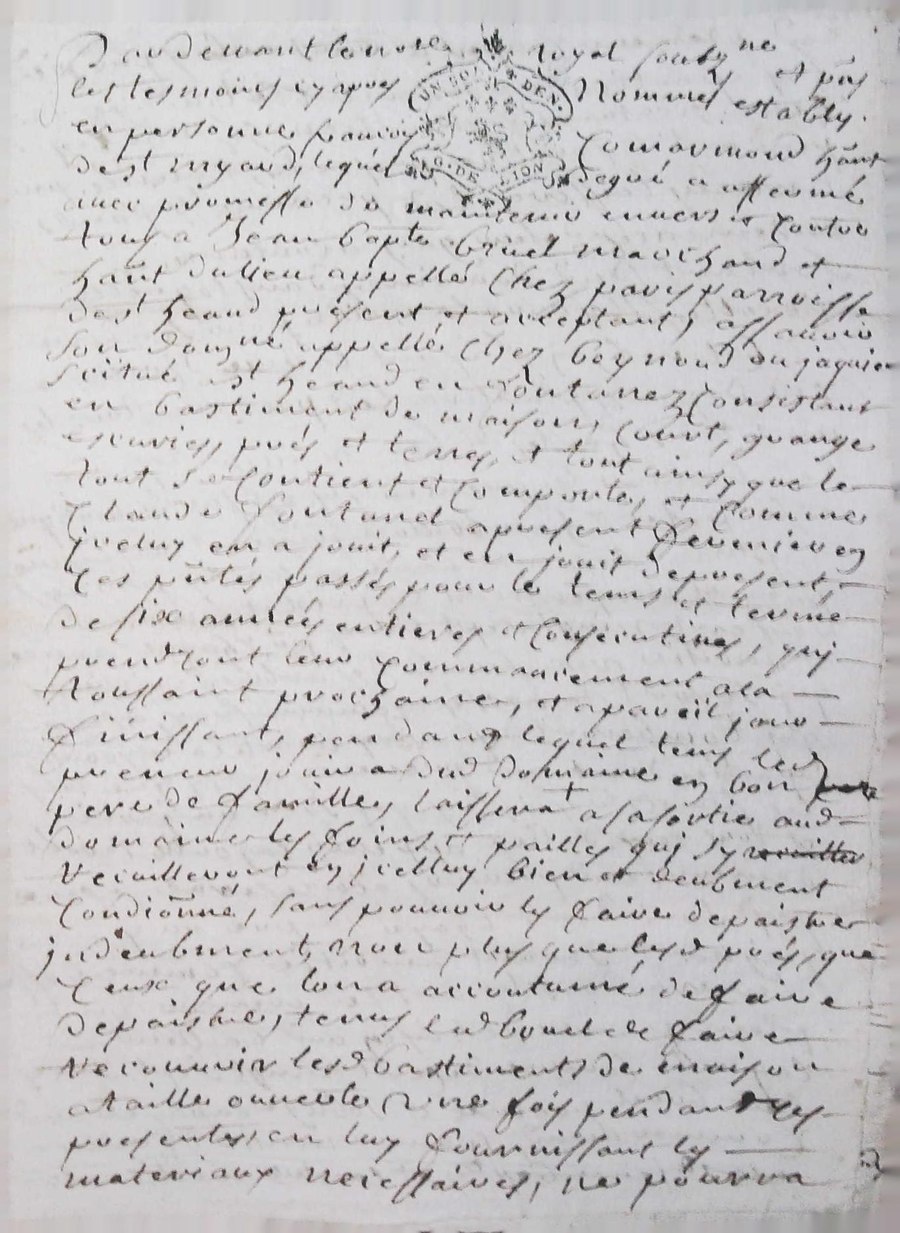 Pardevant le no.re royal soubz.né
et les tesmoins cy apres nommés et p.ns estably
UN SOL DEN.
G. DE LION
en personne
de s.t myard, lequel de gré a affermé
avec promesse de maintenir envers et contre
tous a Jean bap.te bruel marchand et
ha.nt du lieu appellé Chez paris parroisse
de s.t heand present et acceptant, assavoir
son dom.né appellé Chez beynoud ou jaquier
scitué a s.t heand en fontanez Consistant
en bastiment de maison, Court, grange
escuries, prés et terres, et tout ainsy que le
tout se Contient et Comporte, et Comme
Claude fontanel a present fermier en
jceluy en a jouit, et en jouit de present,
Ces p.ntes passés pour le temps et terme
de six années entieres et Consecutives, quj
prendront leur Commancement a la
toussaint prochaine, et a pareil jour
finissant, pendant lequel tems led.
preneur jouira dud. domaine en bon
pere de famille, laissera a sa sortie aud.
domaine les foins et pailles quj sy
recuilleront en jcelluy bien et deubment
Condionné, sans pouvoir les faire depaistre
jndeubment, non plus que lesd. prés, que
Ceux que lon a accoutumé de faire
depaistre, tenus led. bruel de faire
recouvrir lesd. bastiments de maison
a taille ouverte une fois pendant ces
presentes, en luy fournissant les
materiaux necessaires, ne pourra